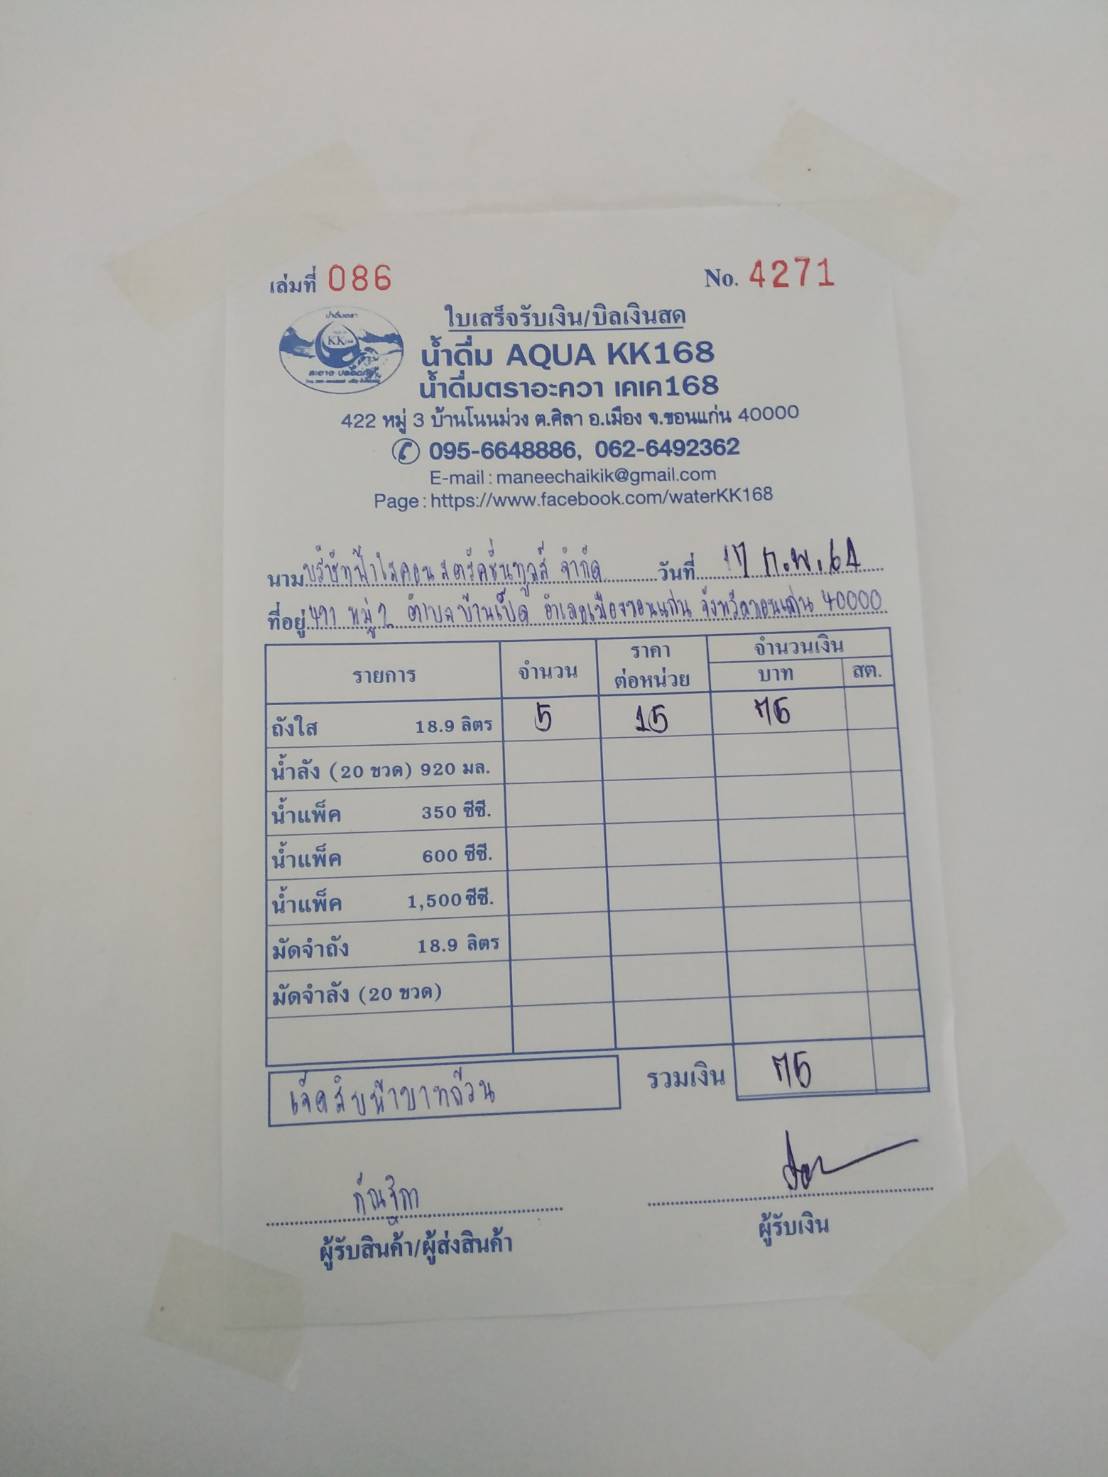 เล่มที่ 086 No. 4271
ใบเสร็จรับเงิน/บิลเงินสด
น้ำดื่มตรา
KK168
สะอาด ปลอดภัย
น้ำดื่ม AQUA KK168
น้ำดื่มตราอะควา เคเค168
422 หมู่ 3 บ้านโนนม่วง ต.ศิลา อ.เมือง จ.ขอนแก่น 40000
095-6648886, 062-6492362
E-mail : maneechaikik@gmail.com
Page : https://www.facebook.com/waterKK168
นาม บริษัทฟ้าใสคอนสตรัคชั่นทูลส์ จำกัด วันที่ 17 ก.พ. 64
ที่อยู่ 491 หมู่ 2 ตำบลบ้านเป็ด อำเภอเมืองขอนแก่น จังหวัดขอนแก่น 40000
รายการ จำนวน ราคา ต่อหน่วย จำนวนเงิน
บาท สต.
ถังใส 18.9 ลิตร 5 15 75
น้ำลัง (20 ขวด) 920 มล.
น้ำแพ็ค 350 ซีซี.
น้ำแพ็ค 600 ซีซี.
น้ำแพ็ค 1,500 ซีซี.
มัดจำถัง 18.9 ลิตร
มัดจำลัง (20 ขวด)
เจ็ดสิบห้าบาทถ้วน รวมเงิน 75
กัณฐิกา
ผู้รับสินค้า/ผู้ส่งสินค้า ผู้รับเงิน